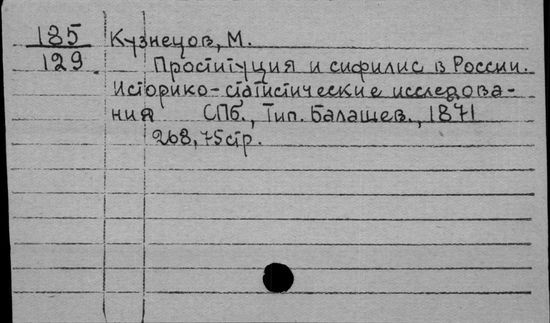 185 Кузнецов, М.
129 Проституция и сифилис в России.
Историко-статистические исследова-
ния СПб., Тип. Балашев., 1871
268, 75 стр.